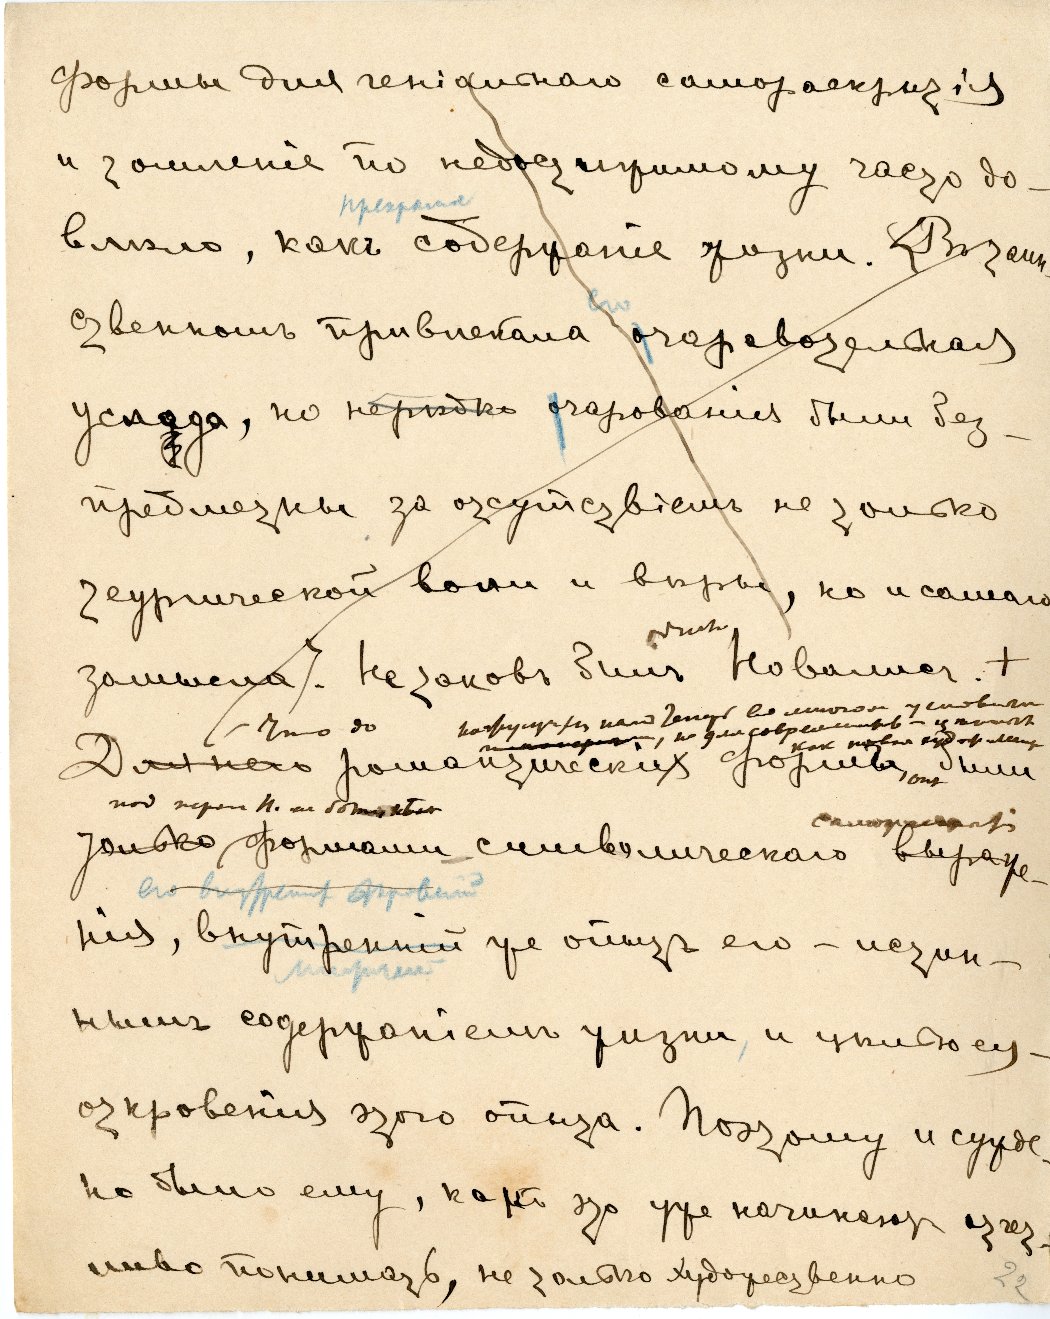 формы для геніальнаго самораскрытія
и томленіе по недостижимому часто до-
прекрасное
влѣло, какъ содержаніе жизни. Въ таин-
его
ственномъ привлекала очаровательная
услада, но нерѣдко очарованія были без-
предметны за отсутствіемъ не только
теургической воли и вѣры, но и самаго
замысла. Не таковъ былъ Новалисъ. +
Что до
Для него романтическія формы, были
под пером Н.
только формами символическаго выраже-
его внутренній
нія, внутренній же опытъ его – истин-
нымъ содержаніемъ жизни, и цѣлью ея –
откровенія этого опыта. Поэтому и сужде-
но было ему, какъ это уже начинаютъ отчет-
ливо понимать, не только художественно
22